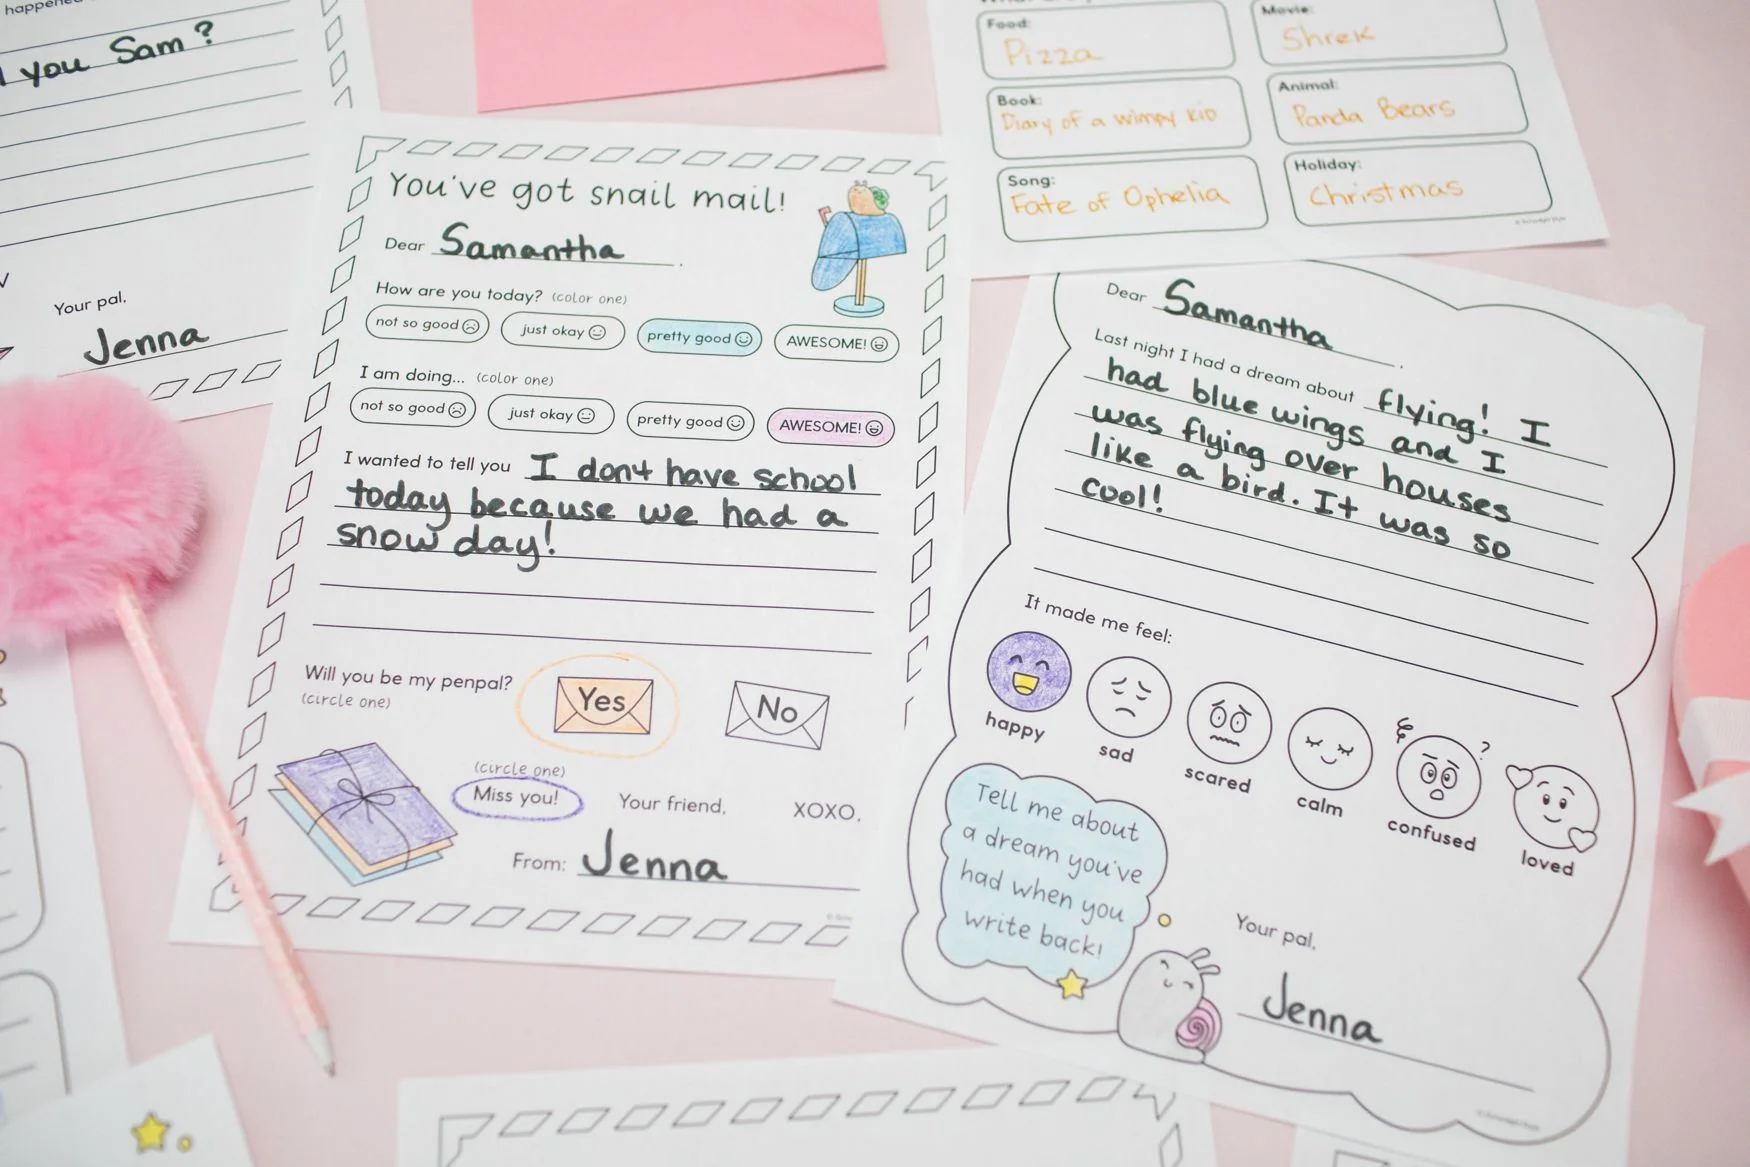 happened
you Sam?
Your pal,
Jenna
You've got snail mail!
Dear Samantha.
How are you today? (color one)
not so good just okay pretty good AWESOME!
I am doing... (color one)
not so good just okay pretty good AWESOME!
I wanted to tell you I don't have school
today because we had a
snow day!
Will you be my penpal?
(circle one)
Yes No
(circle one)
Miss you! Your friend, XOXO,
From: Jenna
Food: Movie:
Pizza Shrek
Book: Animal:
Diary of a wimpy kid Panda Bears
Song: Holiday:
Fate of Ophelia Christmas
Dear Samantha.
Last night I had a dream about flying! I
had blue wings and I
was flying over houses
like a bird. It was so
cool!
It made me feel:
happy sad scared calm confused loved
?
Tell me about
a dream you've
had when you
write back!
Your pal,
Jenna